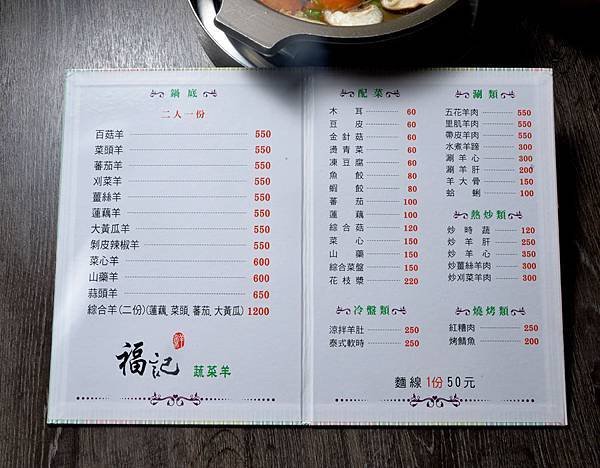 鍋底
二人一份
百菇羊 550
菜頭羊 550
蕃茄羊 550
刈菜羊 550
薑絲羊 550
蓮藕羊 550
大黃瓜羊 550
剝皮辣椒羊 550
菜心羊 600
山藥羊 600
蒜頭羊 650
綜合羊(二份)(蓮藕、菜頭、蕃茄、大黃瓜) 1200
福記 蔬菜羊
配菜
木耳 60
豆皮 60
金針菇 60
燙青菜 60
凍豆腐 60
魚餃 80
蝦餃 80
蕃茄 100
蓮藕 100
綜合菇 120
菜心 150
山藥 150
綜合菜盤 150
花枝漿 220
冷盤類
涼拌羊肚 250
泰式軟時 250
涮類
五花羊肉 550
里肌羊肉 550
帶皮羊肉 550
水煮羊蹄 300
涮羊心 300
涮羊肝 200
羊大骨 150
蛤蜊 100
熱炒類
炒時蔬 120
炒羊肝 250
炒羊心 350
炒薑絲羊肉 300
炒刈菜羊肉 300
燒烤類
紅糟肉 250
烤鯖魚 200
麵線 1份 50元